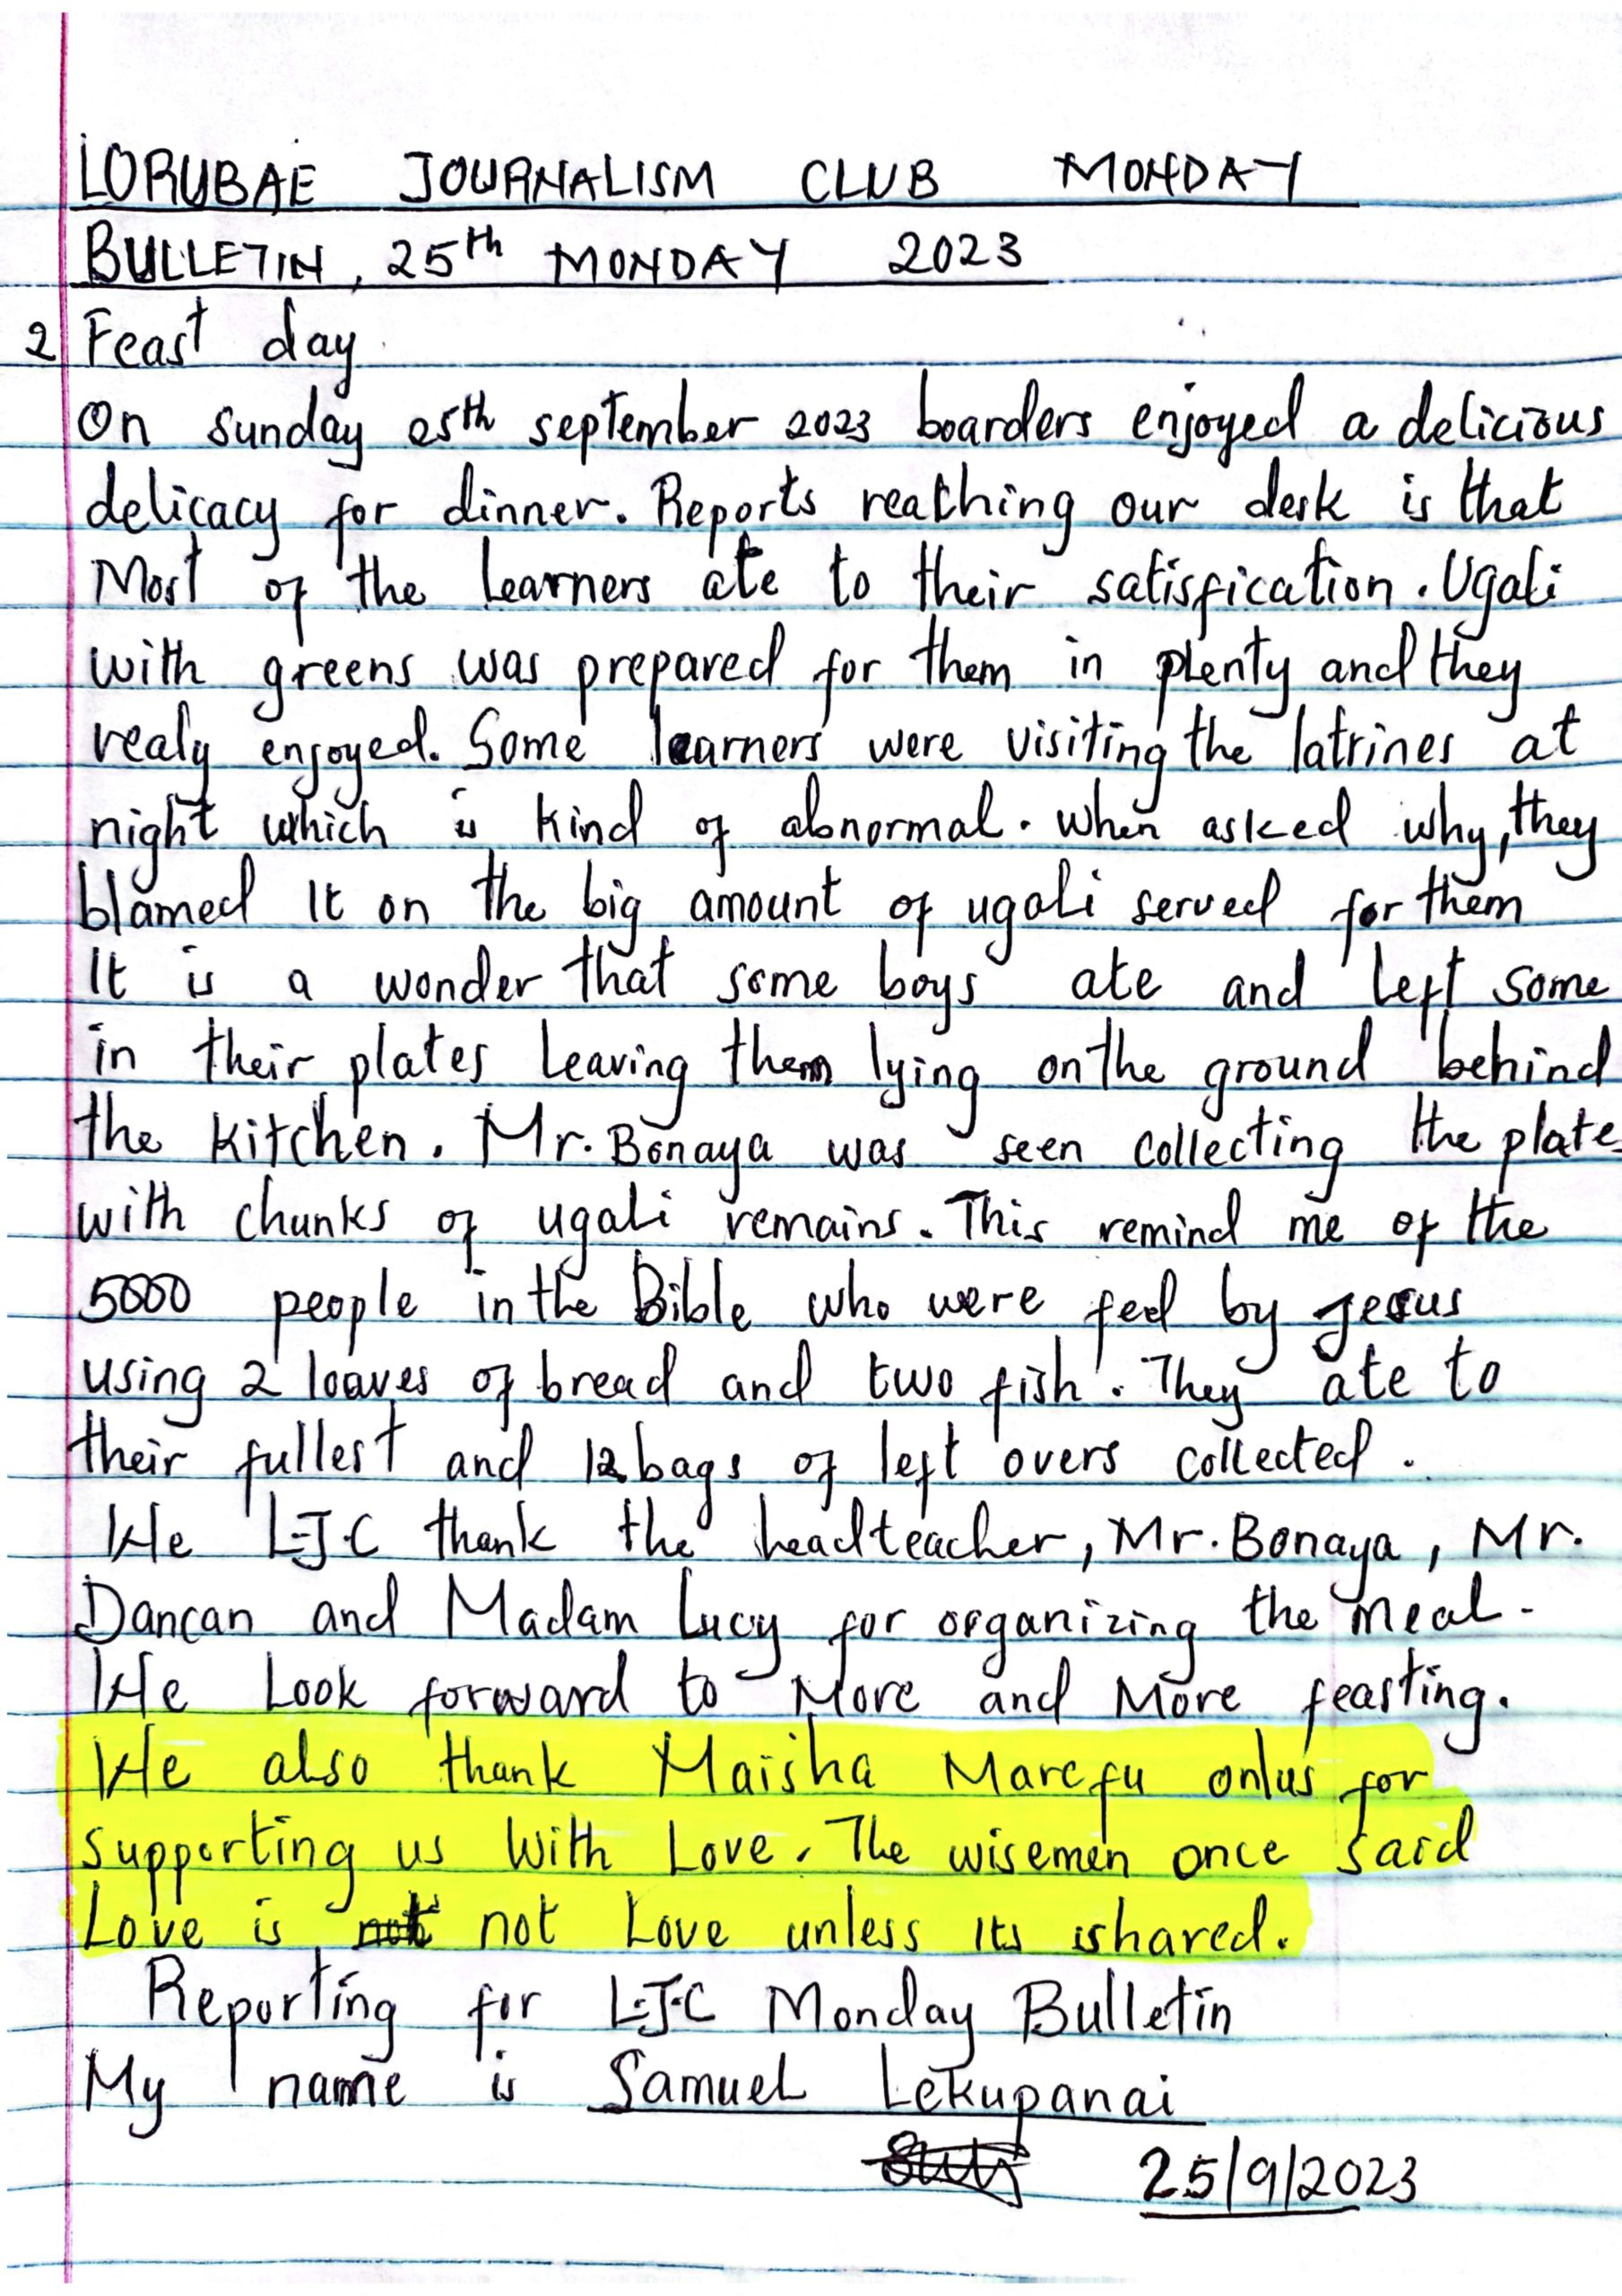 LORUBAE JOURNALISM CLUB MONDAY
BULLETIN, 25th MONDAY 2023
2 Feast day
On sunday 25th september 2023 boarders enjoyed a delicious
delicacy for dinner. Reports reaching our desk is that
Most of the learners ate to their satisfication. Ugali
with greens was prepared for them in plenty and they
realy enjoyed. Some learners were visiting the latrines at
night which is kind of abnormal. When asked why, they
blamed it on the big amount of ugali served for them
It is a wonder that some boys ate and left some
in their plates leaving them lying on the ground behind
the kitchen. Mr. Bonaya was seen collecting the plates
with chunks of ugali remains. This remind me of the
5000 people in the Bible who were fed by Jesus
using 2 loaves of bread and two fish. They ate to
their fullest and 12 bags of left overs collected.
We L.J.C thank the headteacher, Mr. Bonaya, Mr.
Dancan and Madam Lucy for organizing the meal.
We Look forward to More and More feasting.
We also thank Maisha Marefu onlus for
supporting us With Love. The wisemen once said
Love is not Love unless its shared.
Reporting for L.J.C Monday Bulletin
My name is Samuel Lekupanai
25/9/2023